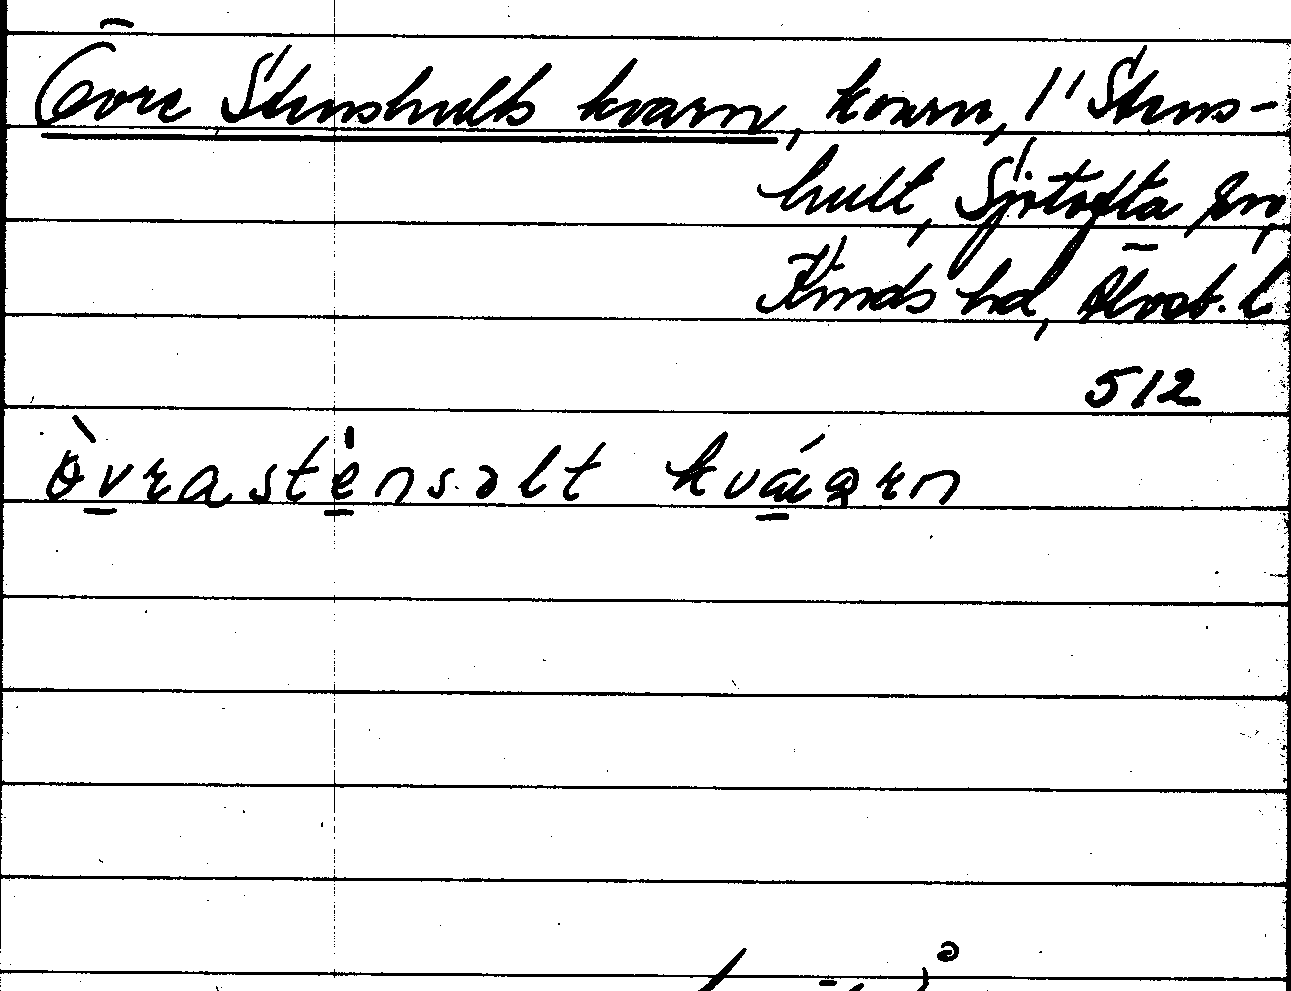 Övre Stenshults kvarn, kvarn, 1' Stens-
hult, Sjötofta sn,
Kinds hd, Älvsb. l.
512
òvrasténsəlt kváarn